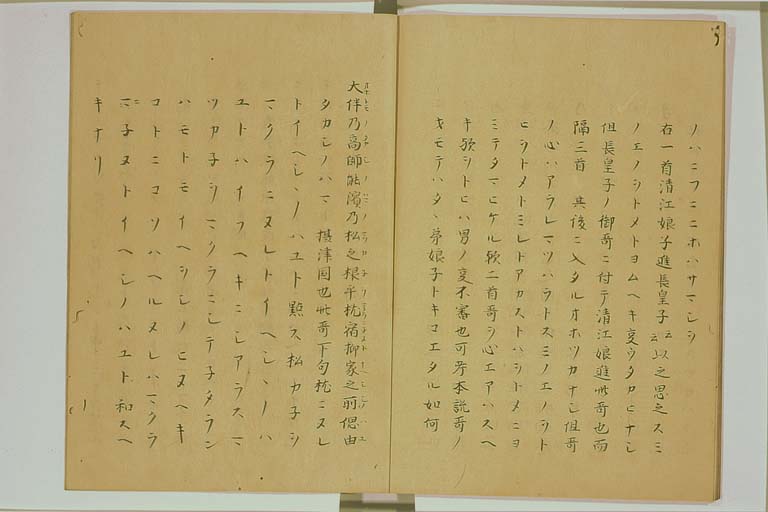 ノハニフニニホハサマシヲ
右一首清江娘子進長皇子云云以之思之スミ
ノエノシトメトヨムヘキ変ウタカヒナシ
但長皇子ノ御哥ニ付テ清江娘進哥也而
隔三首 其後ニ入タルオホツカナシ但哥
ノ心ハアラレマツハラトスミノエノシト
ヒシトメトミレトアカストハシトメニヨ
ミテタマヒケル歟二首哥ヲ心エアハスヘ
キ歟シトヒハ男ノ変不審也可考本説哥ノ
キモテハタヽ弟娘子トキコエタル如何
大伴乃高師能濱乃松之根乎枕宿杼家之所偲由
タカシノハマ 摂津国也此哥下句枕ニヌレ
トイヘシヽノハユト點ス松カ子ヲ
マクラニヌレトイヘシヽノハ
ユトハイフヘキニシアラスマ
ツカ子ヲマクラニシテ子タラン
ハモトモイヘヲシノヒヌヘキ
コトニコソハヘルメレハマクラ
ニ子ヌトイヘシノハユト和スヘ
キナリ